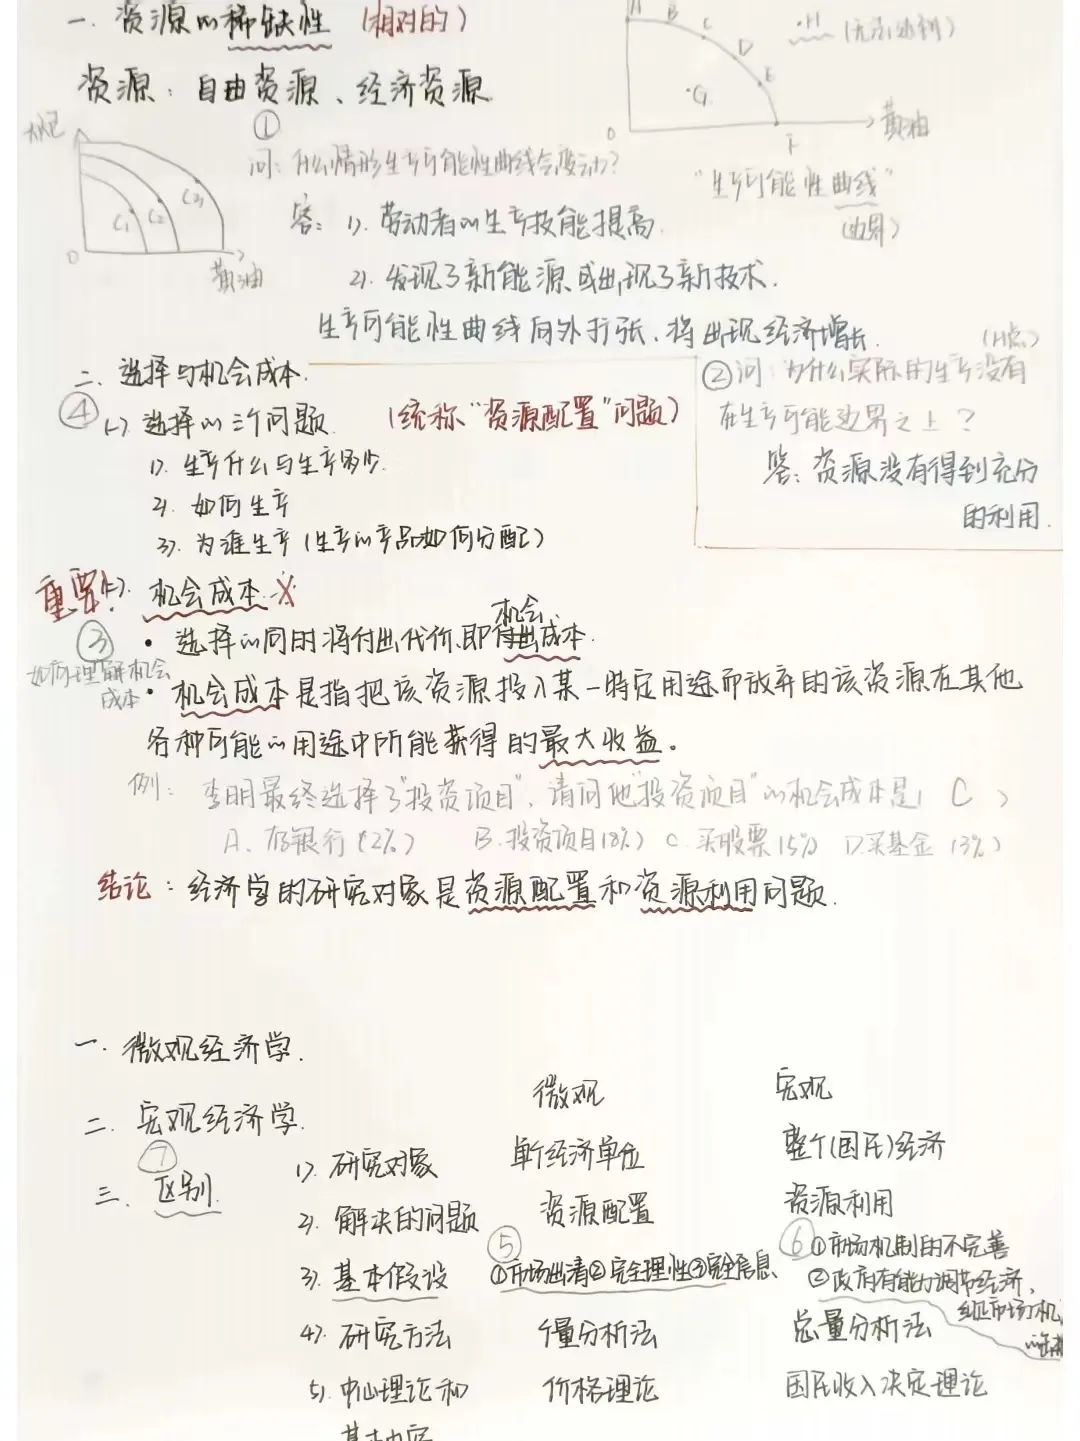 一. 资源的稀缺性 (相对的)
A B C D E F G
·H (无法达到)
资源: 自由资源、经济资源
大炮
C1 C2 C3
O
黄油
O
黄油
"生产可能性曲线"
(边界)
①
问: 什么情形生产可能性曲线会变动?
答: 1). 劳动者的生产技能提高.
2). 发现了新能源或出现了新技术.
生产可能性曲线向外扩张、将出现经济增长.
二. 选择与机会成本.
④ 选择的三个问题 (统称"资源配置"问题)
1). 生产什么与生产多少.
2). 如何生产
3). 为谁生产 (生产的产品如何分配)
②问: 为什么实际的生产没有
在生产可能边界之上?
答: 资源没有得到充分
的利用.
重要! 机会成本.
③ · 选择的同时将付出代价.即机会成本.
如何理解机会
成本
· 机会成本是指把该资源投入某一特定用途而放弃的该资源在其他
各种可能的用途中所能获得的最大收益。
例: 李明最终选择了"投资项目", 请问他"投资项目"的机会成本是( C )
A. 存银行(2%) B. 投资项目(8%) C. 买股票(5%) D.买基金(3%)
结论: 经济学的研究对象是资源配置和资源利用问题.
一. 微观经济学.
二. 宏观经济学.
⑦
三. 区别.
微观 宏观
1). 研究对象 单个经济单位 整个(国民)经济
2). 解决的问题 资源配置 资源利用
3). 基本假设 ⑤ ①市场出清②完全理性③完全信息 ⑥ ①市场机制的不完善
②政府有能力调节经济,
纠正市场机
4). 研究方法 个量分析法 总量分析法
5). 中心理论和 价格理论 国民收入决定理论
基本内容